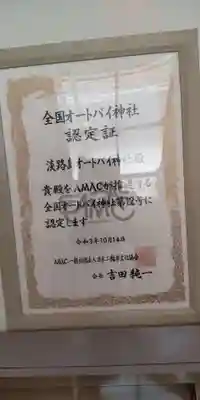 全国オートバイ神社
認定証
淡路島オートバイ神社殿
貴殿をAMACが推進する
全国オートバイ神社第12号に
認定します
令和3年10月16日
会長 吉田純一